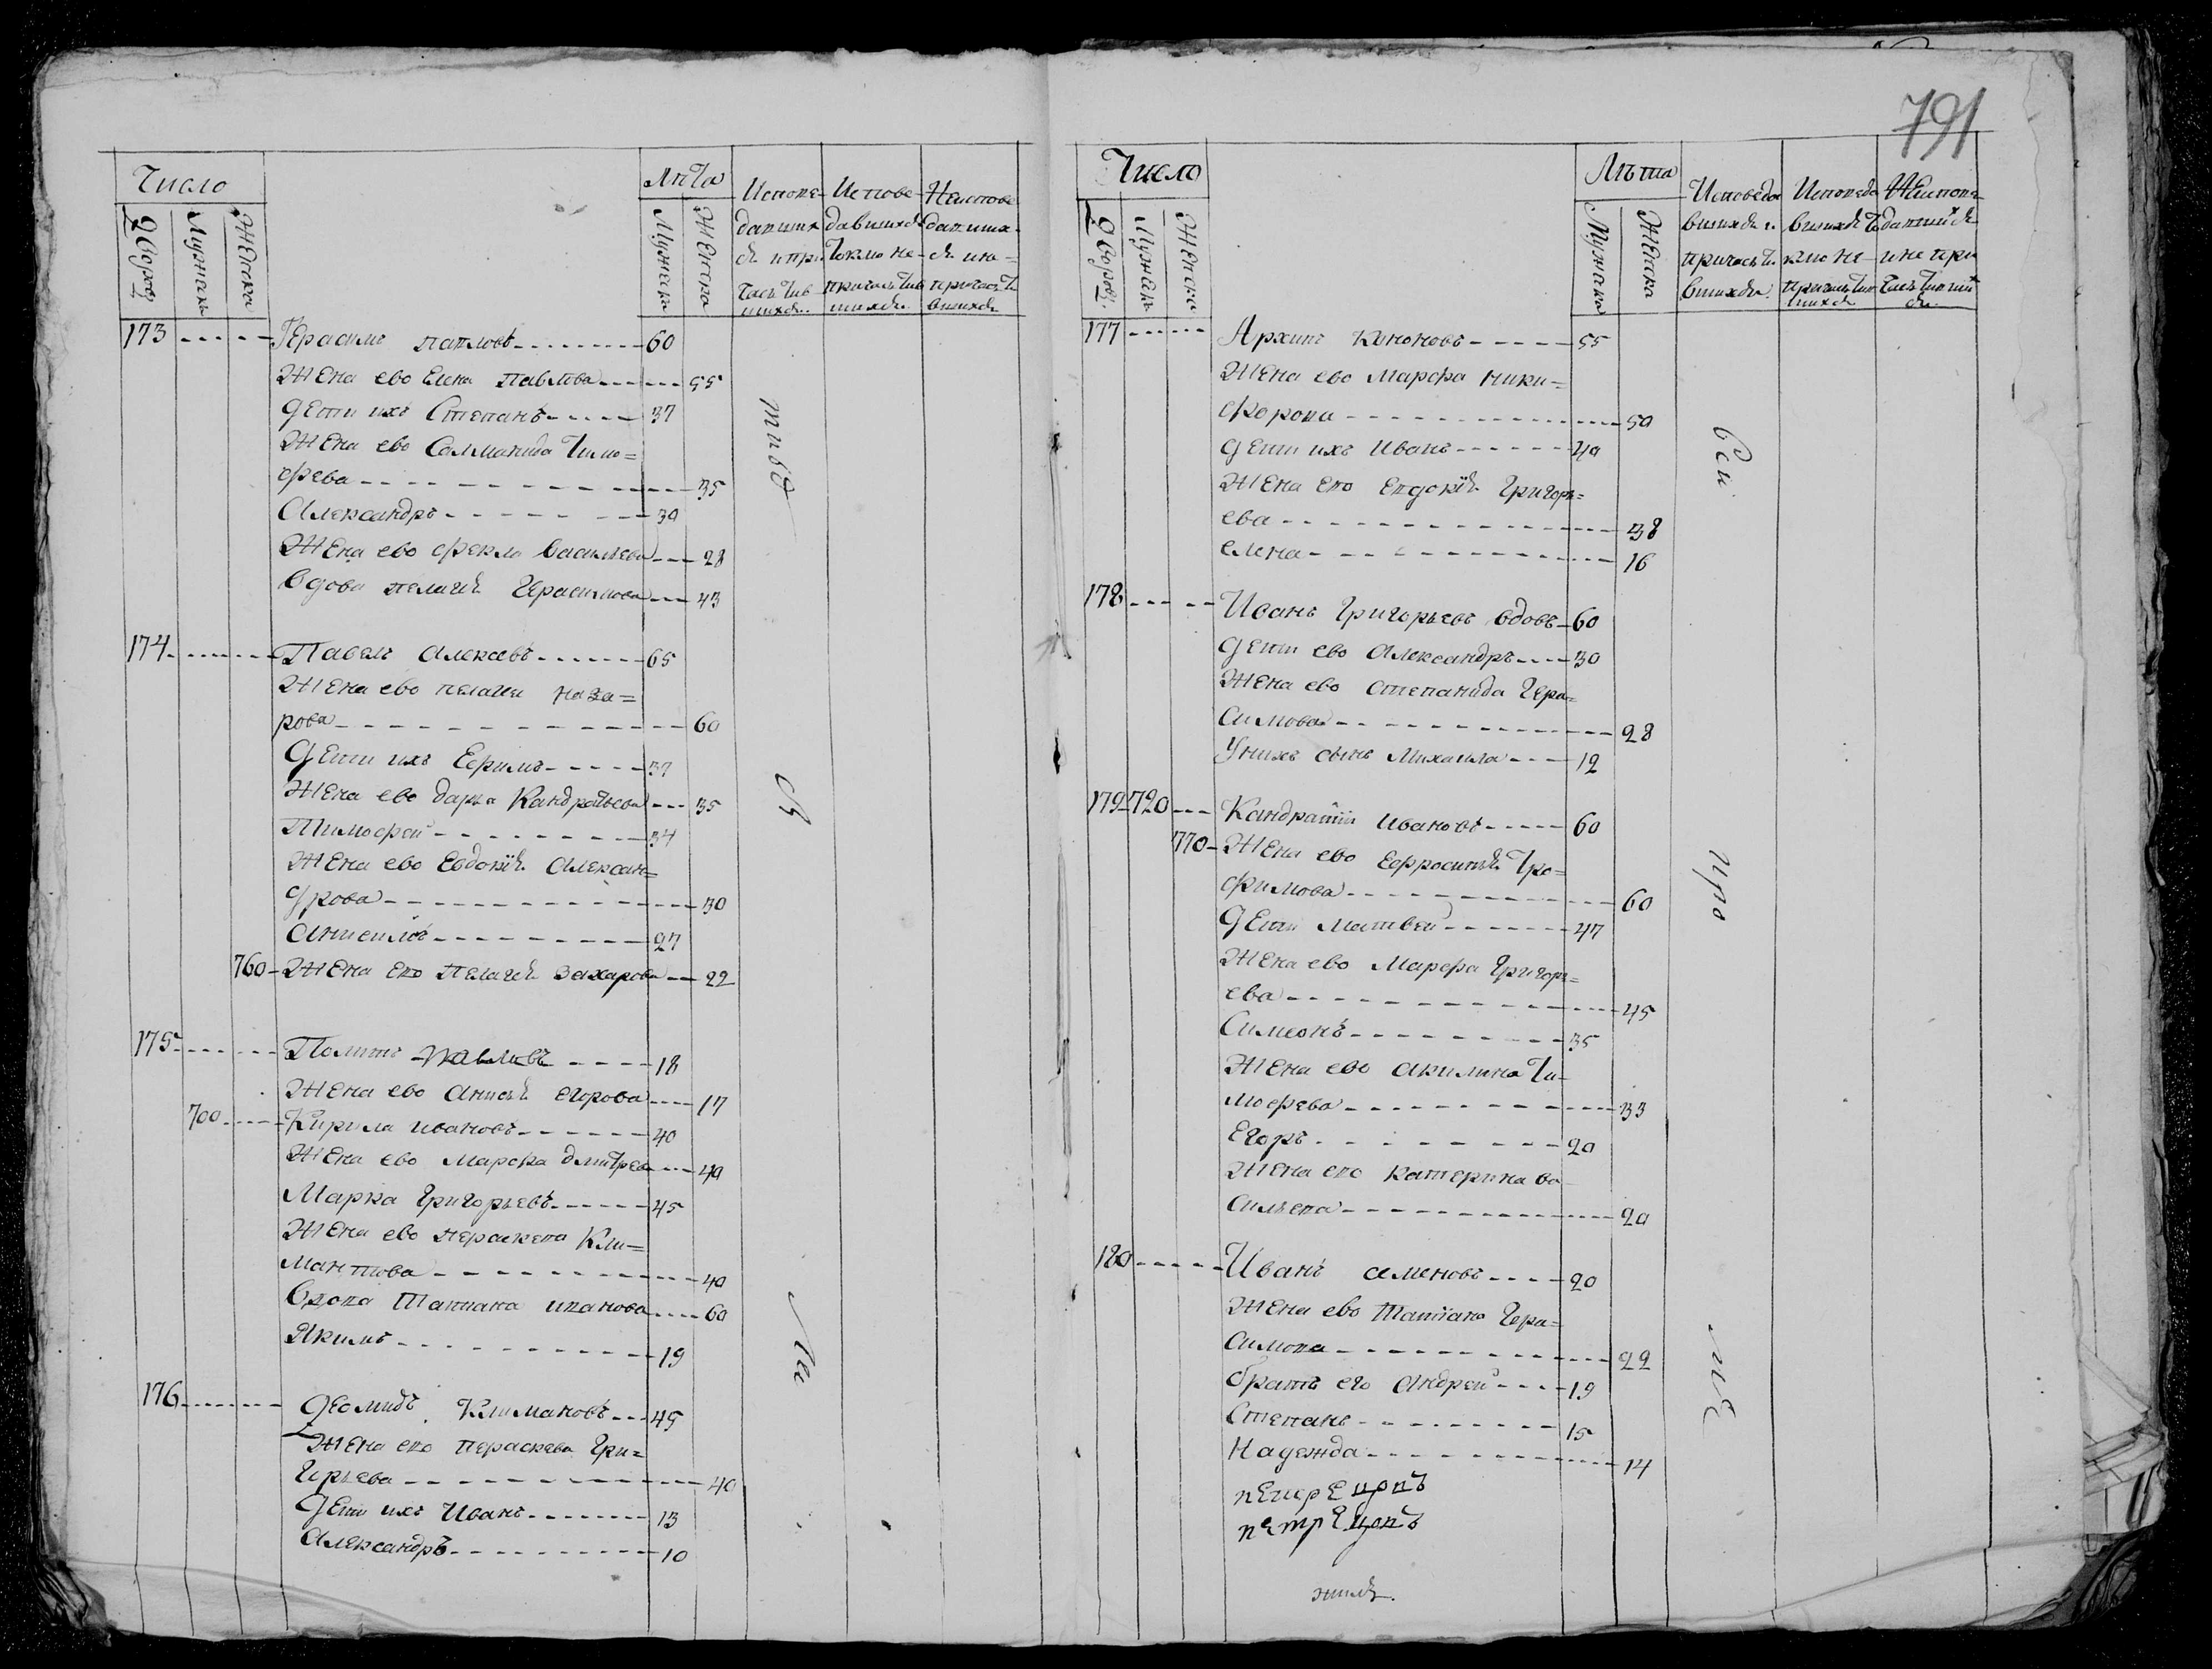 791
Число
Лѣта
Дворовъ
Мужеска
Женска
Мужеска
Женска
Исповѣ-
давших
ся и при
частив
шихся.
Испове-
давшихся
токмо не-
причастив
шихся.
Неиспове
давших-
ся и не=
причасти
вшихся
173 Герасимъ павловъ 60
Жена ево Елена Павлова 55
Дети ихъ Степанъ 37
Жена ево Саламанида Тимо=
фева 35
Александръ 30
Жена ево Фекла Васильева 28
Вдова пелагея Герасимова 43
174 Павелъ Алексевъ 65
Жена ево пелагея наза=
рова 60
Дети ихъ Ефримъ 37
Жена ево дарья Кандратьева 35
Тимофей 34
Жена ево Евдокия Алексан=
дрова 30
Антипъ 27
760 Жена ево Пелагея захарова 22
175 павловъ 18
Жена ево Анисья егорова 17
700 Кирила ивановъ 40
Жена ево Марфа дмитрева 40
Марка григорьевъ 45
Жена ево перасковя Кли=
мантова 40
Вдова Татиана иванова 60
Якимъ 19
176 Деомидъ Климановъ 45
Жена ево пераскева Гри=
горьева 40
Дети ихъ Иванъ 13
Александръ 10
тивъ
я
Число
Лѣта
Дворовъ
Мужеска
Женска
Мужеска
Женска
Исповеда
вшихся и
причасти
вшихся.
Исповеда
вшихся то
кмо не
причасти
вшихся
Неиспове
давшийся
и не при
частивший
ся.
177 Архипъ Кононовъ 55
Жена ево Марфа ники=
форова 50
Дети ихъ Иванъ 40
Жена ево Евдокия Григорь=
ева 38
елена 16
178 Иванъ Григорьевъ вдовъ 60
Дети ево Александръ 30
Жена ево степанида Гера=
симова 28
У нихъ сынъ Михаила 12
179 720 Кандратий ивановъ 60
770 Жена ево Ефросинья Тро=
фимова 60
Дети Матвей 47
Жена ево Марфа Григорь=
ева 45
Симеонъ 35
Жена ево акилина Ти-
мофева 33
Егоръ 20
Жена ево катерина ва
сильева 20
180 Иванъ семеновъ 20
Жена ево Татиана Гера=
симова 22
братъ его Андрей 19
Степанъ 15
Надежда 14